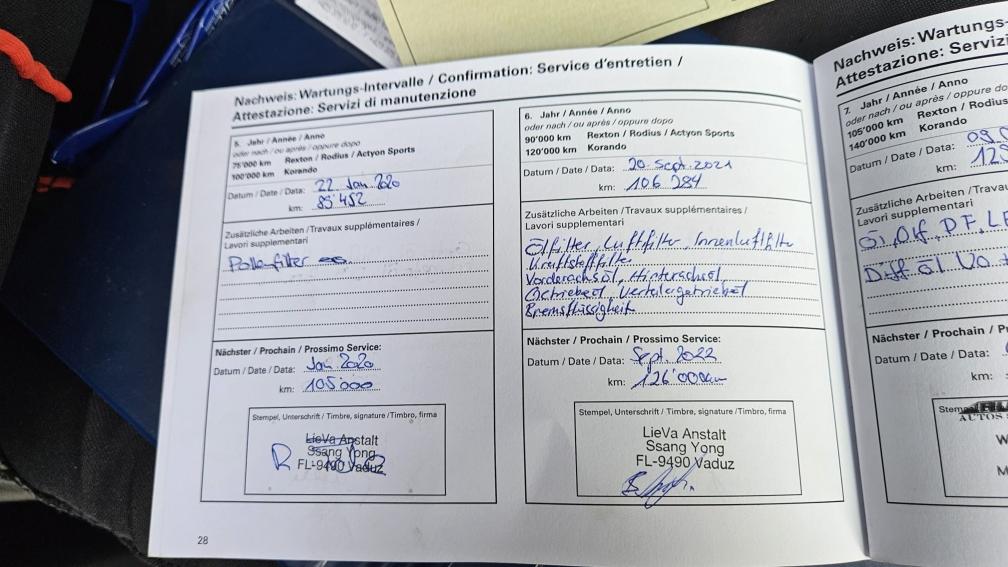 Nachweis: Wartungs-Intervalle / Confirmation: Service d'entretien /
Attestazione: Servizi di manutenzione
5. Jahr / Année / Anno
oder nach / ou après / oppure dopo
75'000 km Rexton / Rodius / Actyon Sports
100'000 km Korando
Datum / Date / Data: 22 Jan 2020
km: 85'452
Zusätzliche Arbeiten / Travaux supplémentaires /
Lavori supplementari
Pollenfilter
Nächster / Prochain / Prossimo Service:
Datum / Date / Data: Jan 2020
km: 105000
Stempel, Unterschrift / Timbre, signature / Timbro, firma
LieVa Anstalt
Ssang Yong
FL-9490 Vaduz
28
6. Jahr / Année / Anno
oder nach / ou après / oppure dopo
90'000 km Rexton / Rodius / Actyon Sports
120'000 km Korando
Datum / Date / Data: 20. Sept. 2021
km: 106'284
Zusätzliche Arbeiten / Travaux supplémentaires /
Lavori supplementari
Ölfilter, Luftfilter, Innenluftfilter
Kraftstofffilter
Vorderachsöl, Hinterachsöl
Getriebeöl, Verteilergetriebeöl
Bremsflüssigkeit
Nächster / Prochain / Prossimo Service:
Datum / Date / Data: Sept. 2022
km: 126'000km
Stempel, Unterschrift / Timbre, signature / Timbro, firma
LieVa Anstalt
Ssang Yong
FL-9490 Vaduz
Nachweis: Wartungs-
Attestazione: Servizi
7. Jahr / Année / Anno
oder nach / ou après / oppure do
105'000 km Rexton / Rodius
140'000 km Korando
Datum / Date / Data:
km:
Zusätzliche Arbeiten / Trava
Lavori supplementari
Diff öl
Nächster / Prochain / P
Datum / Date / Data:
km:
Stem
AUTOS